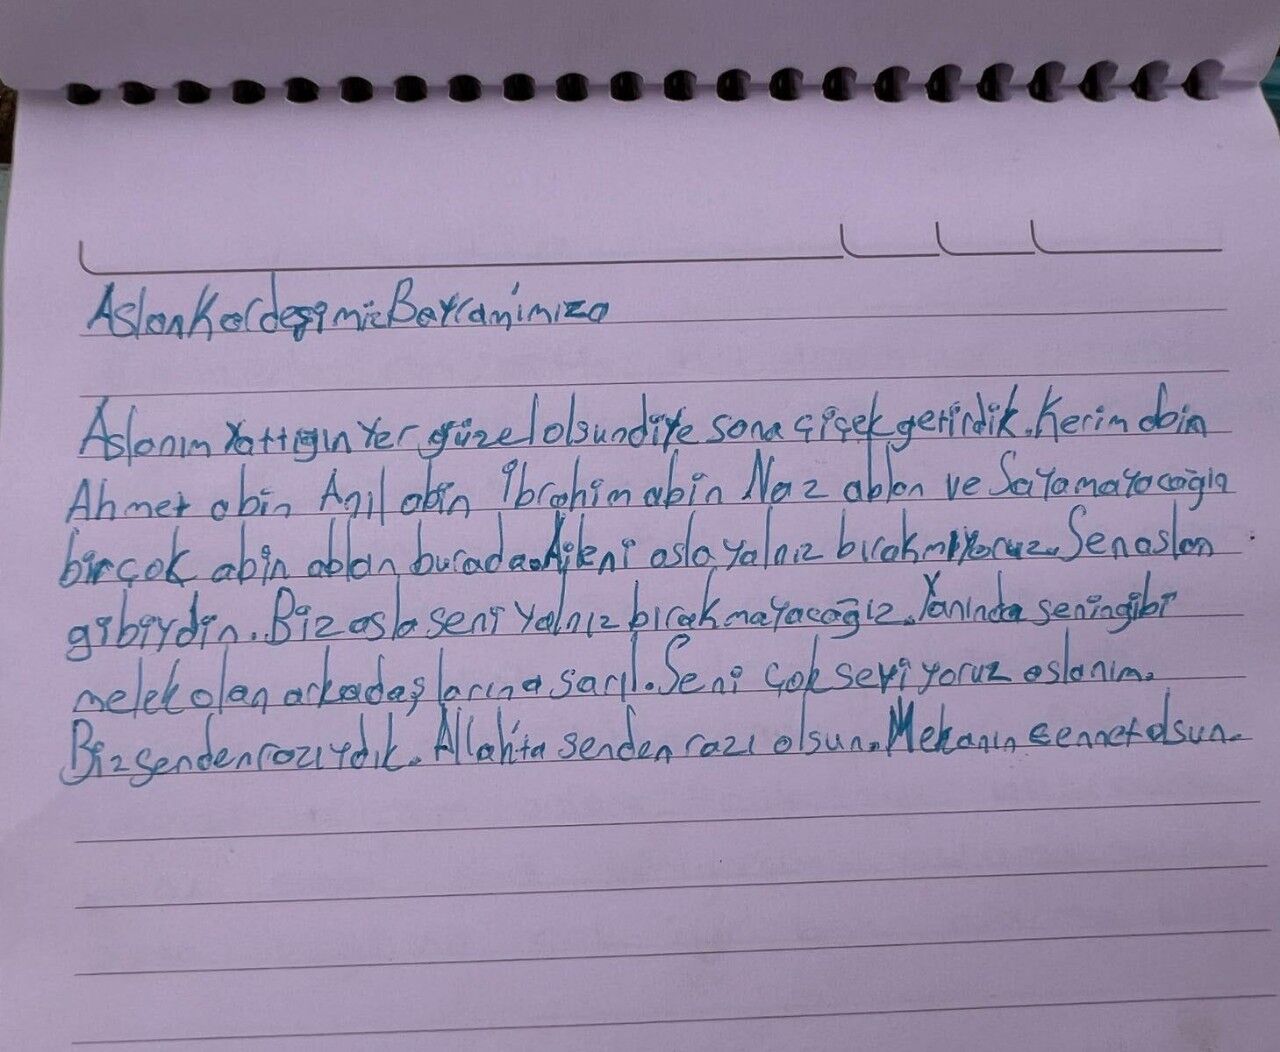 Aslan Kardeşimiz Bayram'ımıza
Aslanım Yattığın Yer güzel olsun diye sana çiçek getirdik. Kerim abin
Ahmet abin Anıl abin İbrahim abin Naz ablan ve Sayamayacağın
birçok abin ablan burada. Aileni asla yalnız bırakmıyoruz. Sen aslan
gibiydin. Biz asla seni yalnız bırakmayacağız. Yanında senin gibi
melek olan arkadaşlarına sarıl. Seni çok seviyoruz aslanım.
Biz senden razıydık. Allah'ta senden razı olsun. Mekanın cennet olsun.